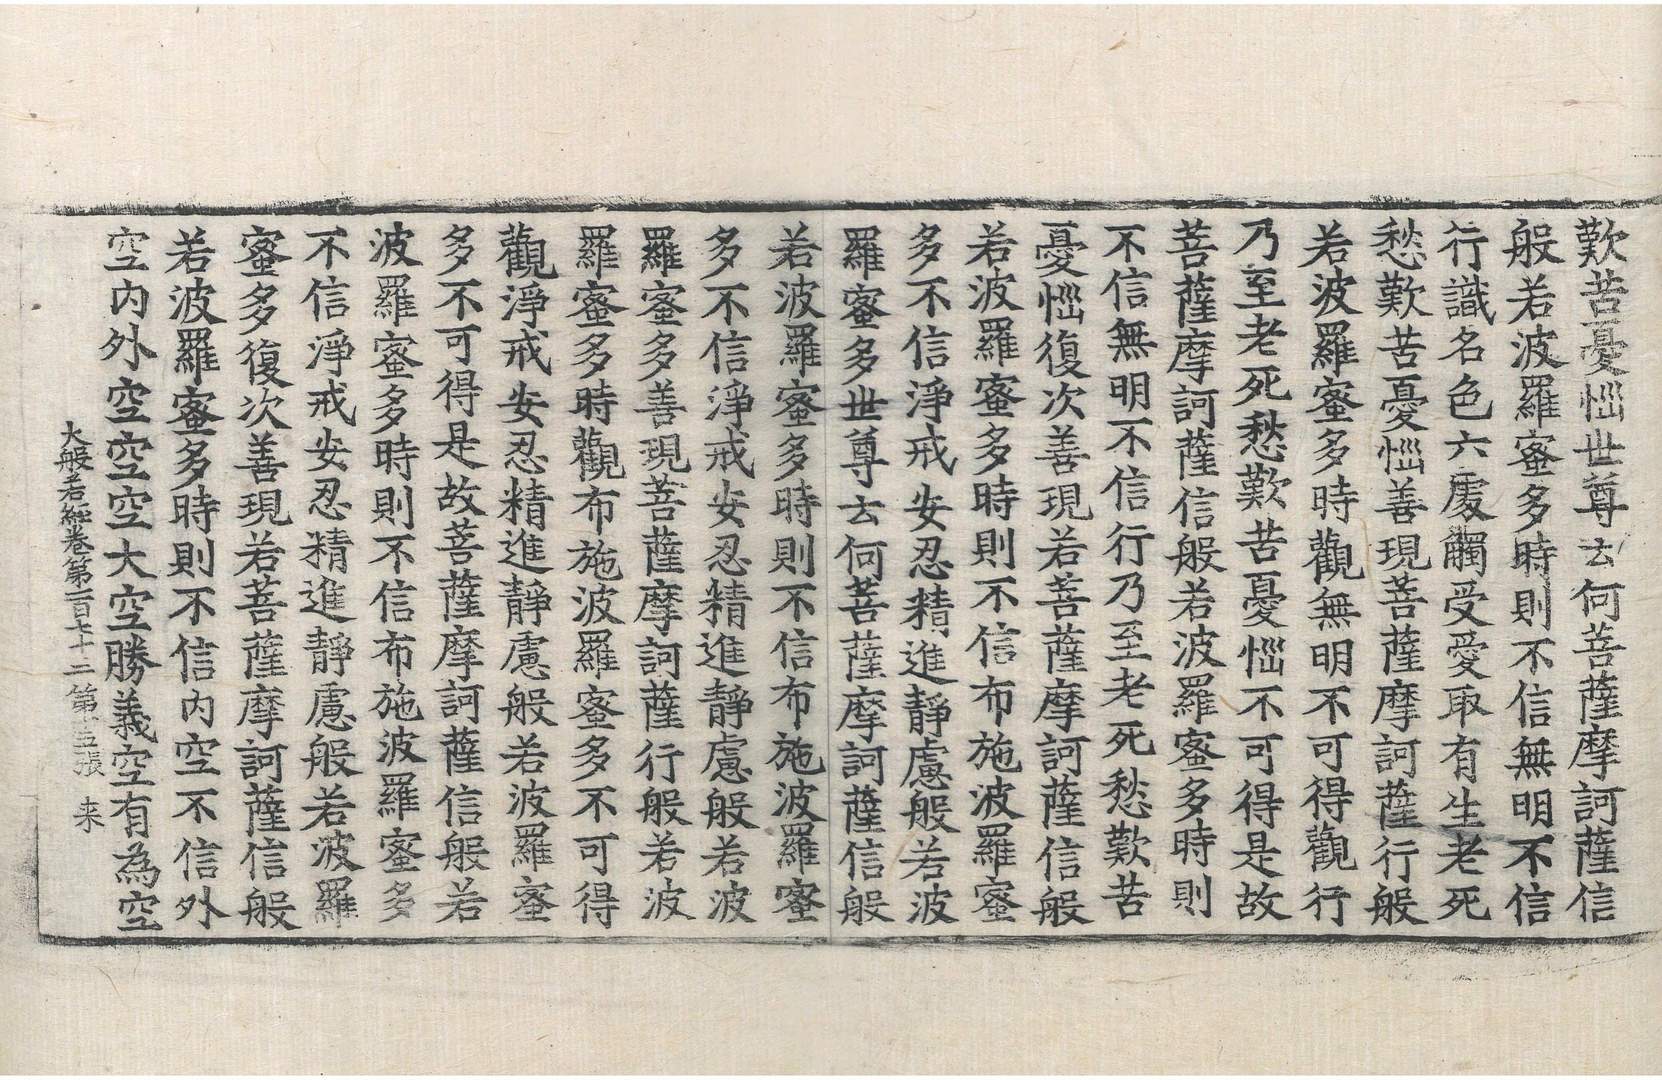 歎苦憂惱世尊云何菩薩摩訶薩信
般若波羅蜜多時則不信無明不信
行識名色六處觸受愛取有生老死
愁歎苦憂惱善現菩薩摩訶薩行般
若波羅蜜多時觀無明不可得觀行
乃至老死愁歎苦憂惱不可得是故
菩薩摩訶薩信般若波羅蜜多時則
不信無明不信行乃至老死愁歎苦
憂惱復次善現若菩薩摩訶薩信般
若波羅蜜多時則不信布施波羅蜜
多不信淨戒安忍精進靜慮般若波
羅蜜多世尊云何菩薩摩訶薩信般
若波羅蜜多時則不信布施波羅蜜
多不信淨戒安忍精進靜慮般若波
羅蜜多善現菩薩摩訶薩行般若波
羅蜜多時觀布施波羅蜜多不可得
觀淨戒安忍精進靜慮般若波羅蜜
多不可得是故菩薩摩訶薩信般若
波羅蜜多時則不信布施波羅蜜多
不信淨戒安忍精進靜慮般若波羅
蜜多復次善現若菩薩摩訶薩信般
若波羅蜜多時則不信内空不信外
空内外空空空大空勝義空有為空
大般若經卷第一百七十二 第十五張 来